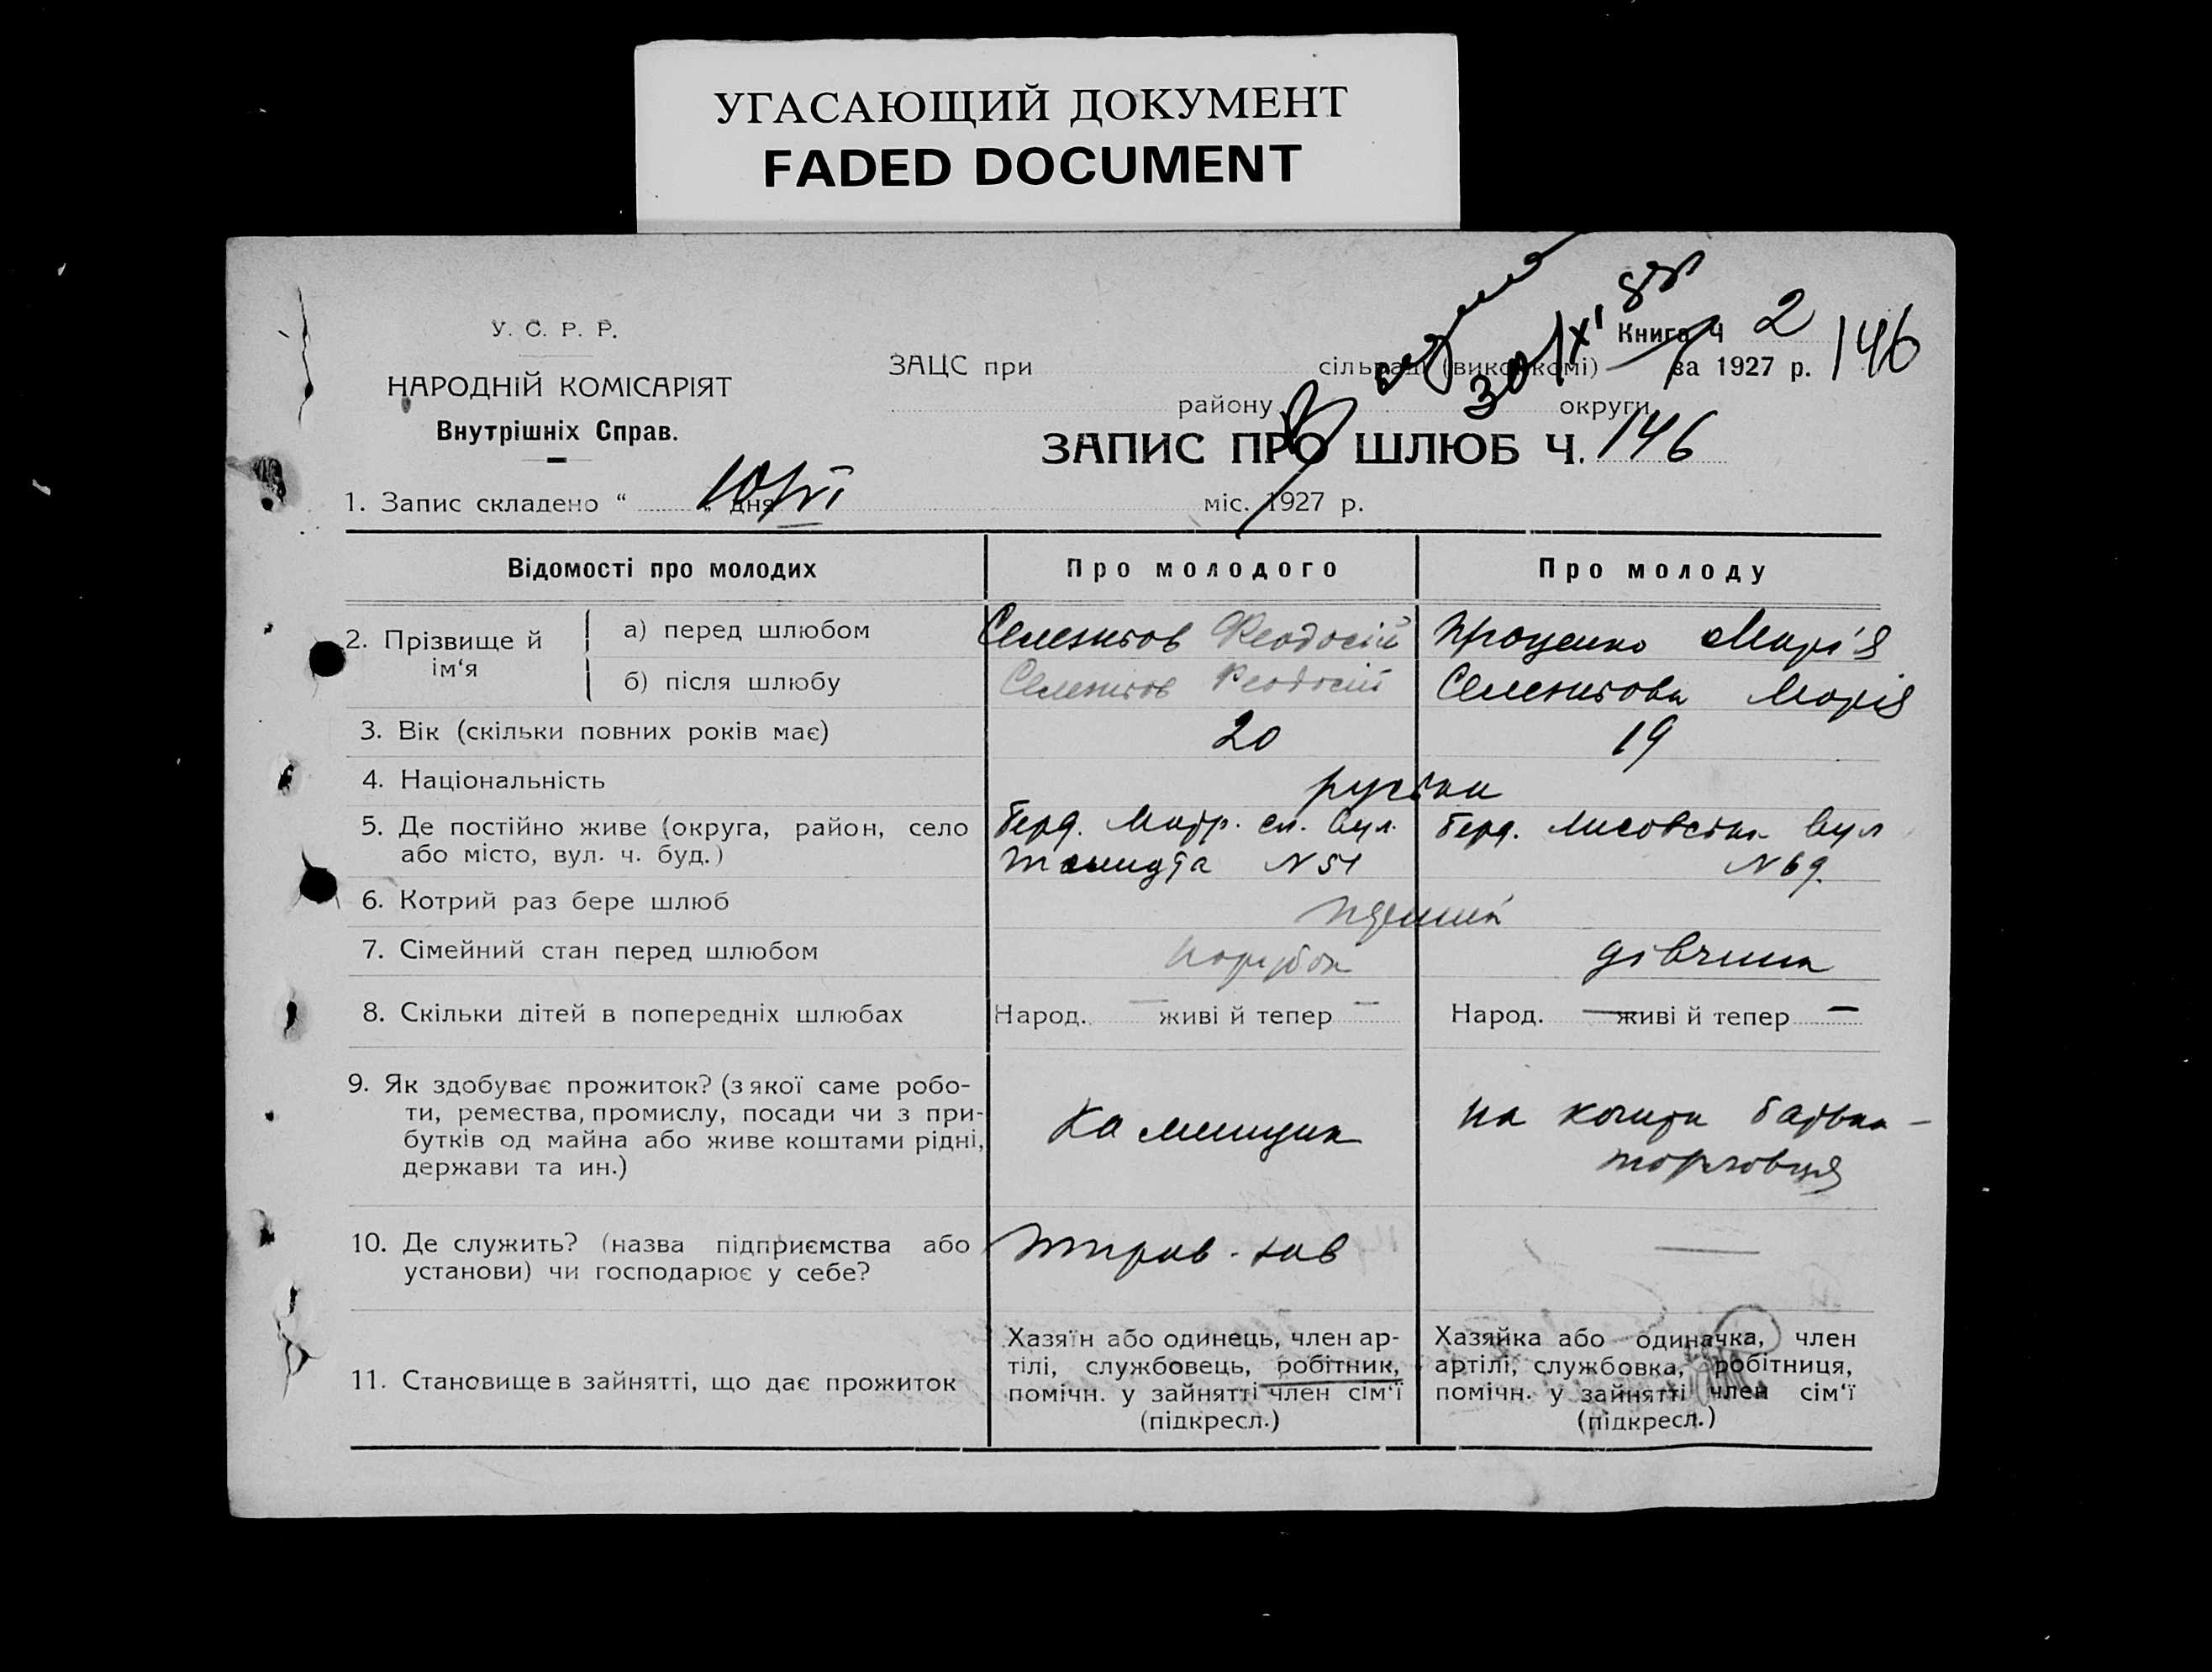 УГАСАЮЩИЙ ДОКУМЕНТ
FADED DOCUMENT
У. С. Р. Р.
НАРОДНІЙ КОМІСАРІЯТ
Внутрішніх Справ.
Книга Ч 2
146
ЗАЦС при сільраді (виконкомі) за 1927 р.
району округи
30/XI
ЗАПИС ПРО ШЛЮБ Ч. 146
1. Запис складено “ „ дня 10/VI міс. 1927 р.
Відомості про молодих Про молодого Про молоду
2. Прізвище й ім‘я
а) перед шлюбом Феодосій Проценко Марія
б) після шлюбу Феодосій Марія
3. Вік (скільки повних років має) 20 19
4. Національність
5. Де постійно живе (округа, район, село Берд. вул. Берд. Лисовська вул
або місто, вул. ч. буд.) N 51 N 69.
6. Котрий раз бере шлюб перший
7. Сімейний стан перед шлюбом парубок дівчина
8. Скільки дітей в попередніх шлюбах Народ. — живі й тепер — Народ. — живі й тепер —
9. Як здобуває прожиток? (з якої саме робо-
ти, ремества, промислу, посади чи з при-
бутків од майна або живе коштами рідні,
держави та ин.)
Каменщик
на кошти батька -
торговця
10. Де служить? (назва підприємства або
установи) чи господарює у себе?
—
11. Становище в зайнятті, що дає прожиток
Хазяїн або одинець, член ар-
тілі, службовець, робітник,
помічн. у зайнятті член сім‘ї
(підкресл.)
Хазяйка або одиначка, член
артілі, службовка, робітниця,
помічн. у зайнятті член сім‘ї
(підкресл.)